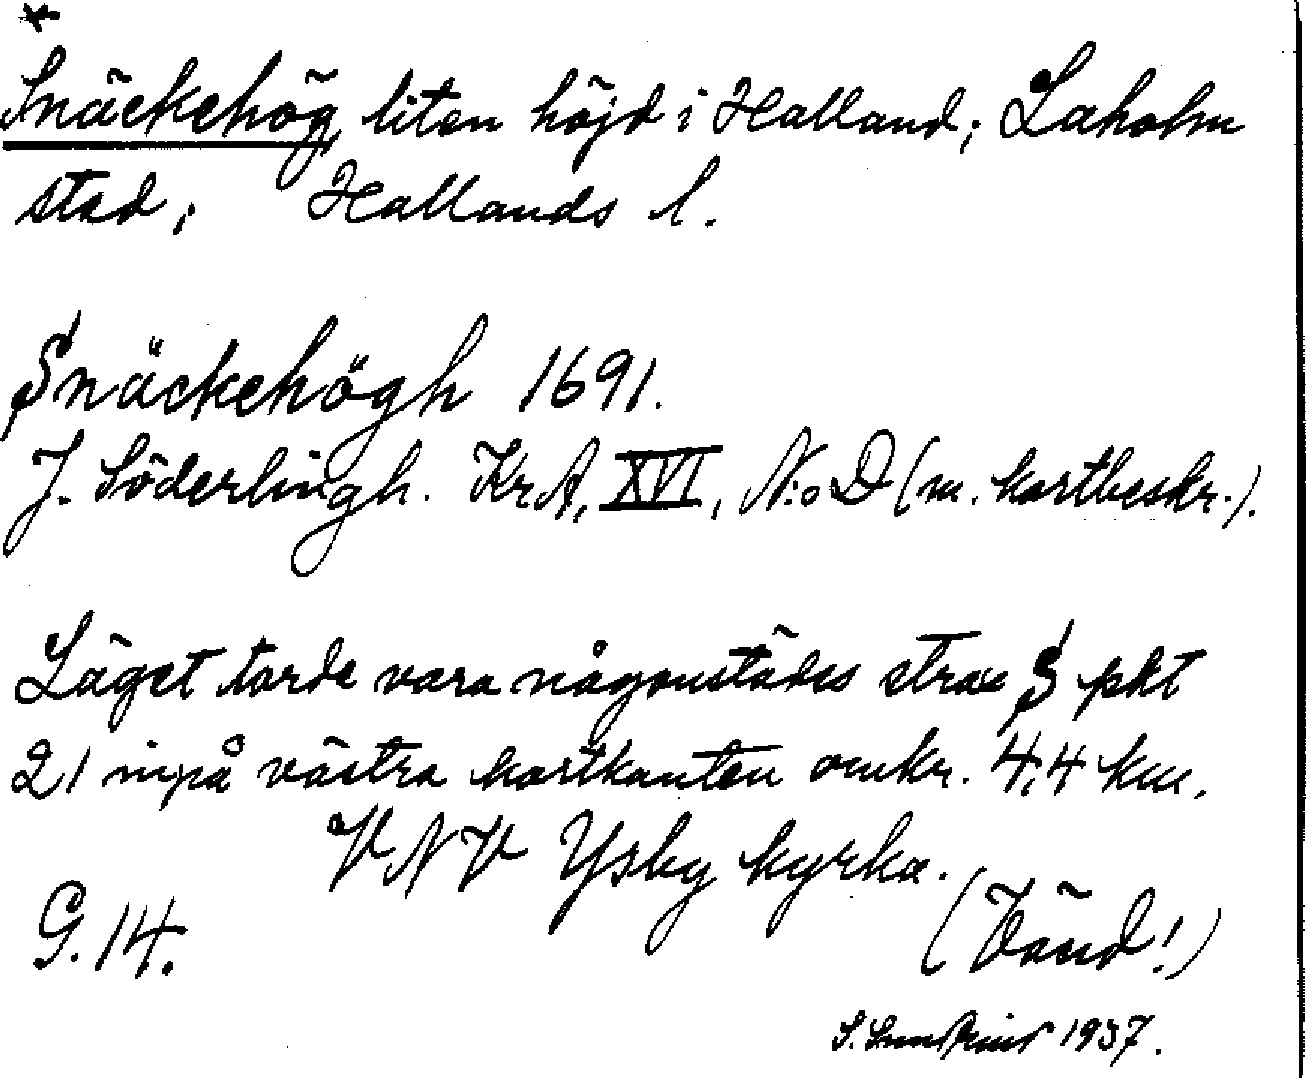 *
Snäckehög, liten höjd i Halland; Laholm
stad; Hallands l.
Snäckehögh 1691.
J. Söderlingh. KrA, XVI, N:o D (m. kartbeskr.).
Läget torde vara någonstädes strax S pkt
21 inpå västra kartkanten omkr. 4,4 km.
VNV Ysby kyrka.
G. 14.
(Vänd!)
S. 1937.